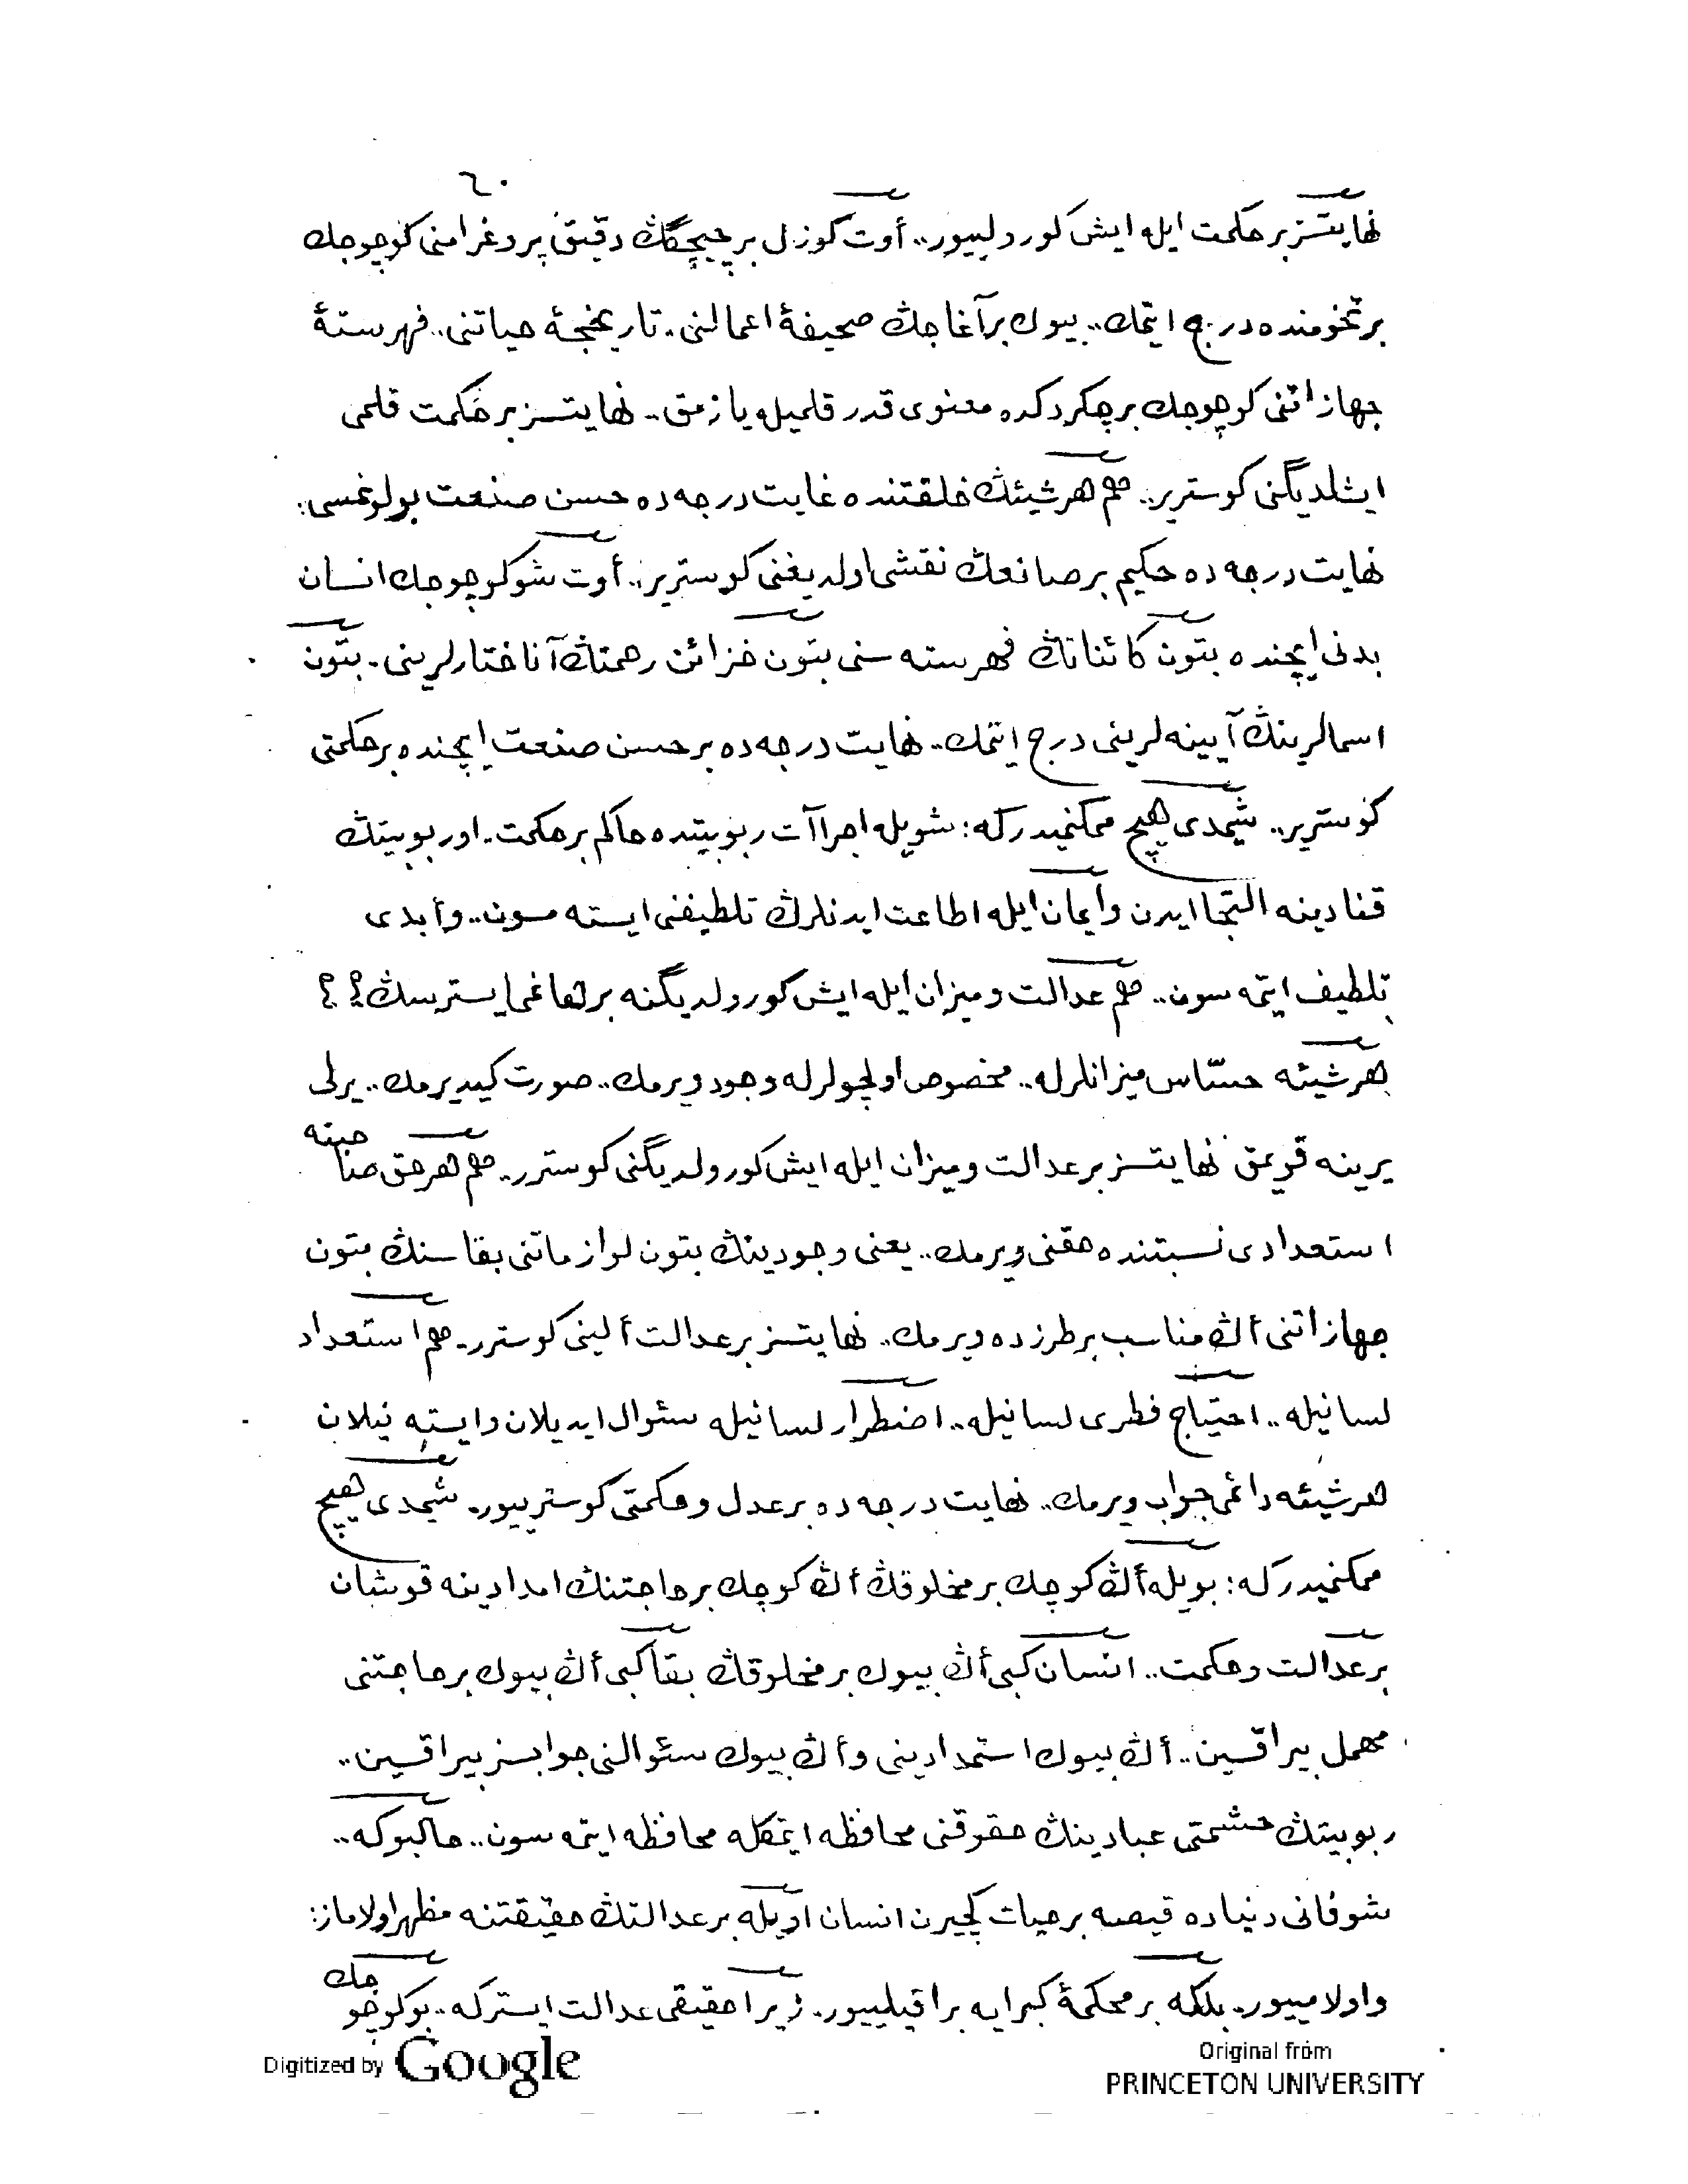 ٦٠
نهايتسز بر حكمت ايله ايش كورولييور.. أوت كوزل بر چيچكڭ دقيق پروغرامنى كوچوجك
بر تخومنده درج ايتمك.. بيوك بر آغاجڭ صحيفهٔ اعمالنى.. تاريخچهٔ حياتنى.. فهرستهٔ
جهازاتنى كوچوجك بر چكردكده معنوى قدر قلميله يازمق.. نهايتسز بر حكمت قلمى
ايشلديگنى كوسترير.. هم هر شيئڭ خلقتنده غايت درجه ده حسن صنعت بولونمسى:
نهايت درجه ده حكيم بر صانعڭ نقشى اولديغنى كوسترير.. أوت شو كوچوجك انسان
بدنى ايچنده بتون كائناتڭ فهرسته سنى بتون خزائن رحمتڭ آناختارلرينى.. بتون
اسمالرينڭ آيينه لرينى درج ايتمك.. نهايت درجه ده بر حسن صنعت ايچنده بر حكمتى
كوسترير.. شيمدى هيچ ممكنميدركه: شويله اجراآت ربوبيتده حاكم بر حكمت.. او ربوبيتڭ
قنادينه التجا ايدن وأيمان ايله اطاعت ايدنلرڭ تلطيفنى ايسته مسون.. وأبدى
تلطيف ايتمه سون.. هم عدالت و ميزان ايله ايش كورولديگنه برهانمى ايسترسڭ؟؟
هر شيئه حسّاس ميزانلرله.. مخصوص اولچولرله وجود ويرمك.. صورت كيديرمك.. يرلى
يرينه قويمق نهايتسز بر عدالت و ميزان ايله ايش كورولديگنى كوسترر.. هم هر حق صاحبنه
استعدادى نسبتنده حقنى ويرمك.. يعنى وجودينڭ بتون لوازماتنى بقاسنڭ بتون
جهازاتنى أڭ مناسب بر طرزده ويرمك.. نهايتسز بر عدالت ألينى كوسترر.. هم استعداد
لسانيله.. احتياج فطرى لسانيله.. اضطرار لسانيله سئوال ايديلان و ايسته نيلان
هر شيئه دائمى جواب ويرمك.. نهايت درجه ده بر عدل و حكمتى كوسترييور.. شيمدى هيچ
ممكنميدركه: بويله أڭ كوچك بر مخلوقڭ أڭ كوچك بر حاجتنڭ امدادينه قوشان
بر عدالت و حكمت.. انسان كبى أڭ بيوك بر مخلوقڭ بقا كبى أڭ بيوك بر حاجتنى
مهمل بيراقسين.. أڭ بيوك استمدادينى و أڭ بيوك سئوالنى جوابسز بيراقسين..
ربوبيتڭ حشمتى عبادينڭ حقوقنى محافظه ايتمكله محافظه ايتمه سون.. حالبوكه..
شو فانى دنياده قيصه بر حيات كچيرن انسان اويله بر عدالتڭ حقيقتنه مظهر اولاماز:
و اولامييور.. بلكه بر محكمهٔ كبرايه براقيلييور.. زيرا حقيقى عدالت ايستركه.. بو كوچوجك
Digitized by Google
Original from
PRINCETON UNIVERSITY